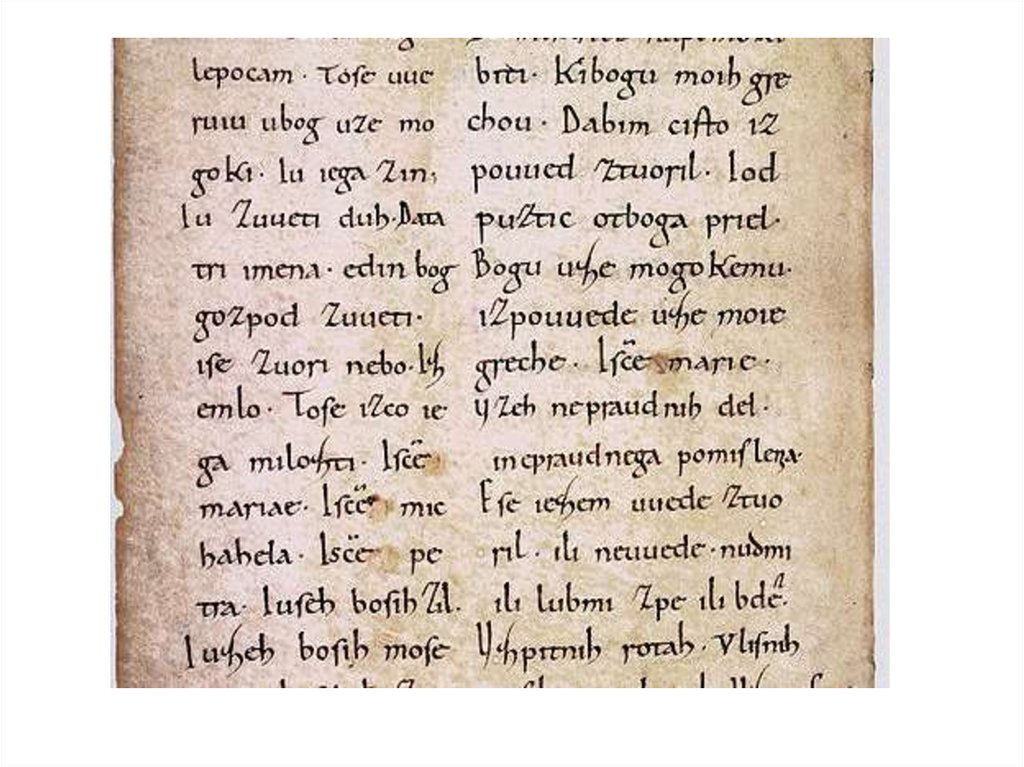 lepocam · Tose uue
ruiu ubog uze mo
goki · Iu iega Zin;
Iu Zuueti duh · Data
tri imena · edin bog
gozpod Zuueti ·
ise Zuori nebo · Iſh
emlo · Tose izco ie
ga milosti · Iscē
mariae · Iscē mic
hahela · Iscē pe
tra · Iuseh bosih Zil.
Iusheh bosih mose
briti · Kibogu moih gre
chou · Dabim cisto iz
pouued Ztuoril · Iod
puztic otboga priel ·
Bogu use mogokemu ·
izpouuede use moie
greche · Iscē marie ·
yzeh nepraudnih del ·
inepraudnega pomislenza ·
Ese ieshem uuede Ztuo
ril · ili neuuede · nudmi
ili lubmi Zpe ili bde ·
Vshpitnih rotah · Vlisnih